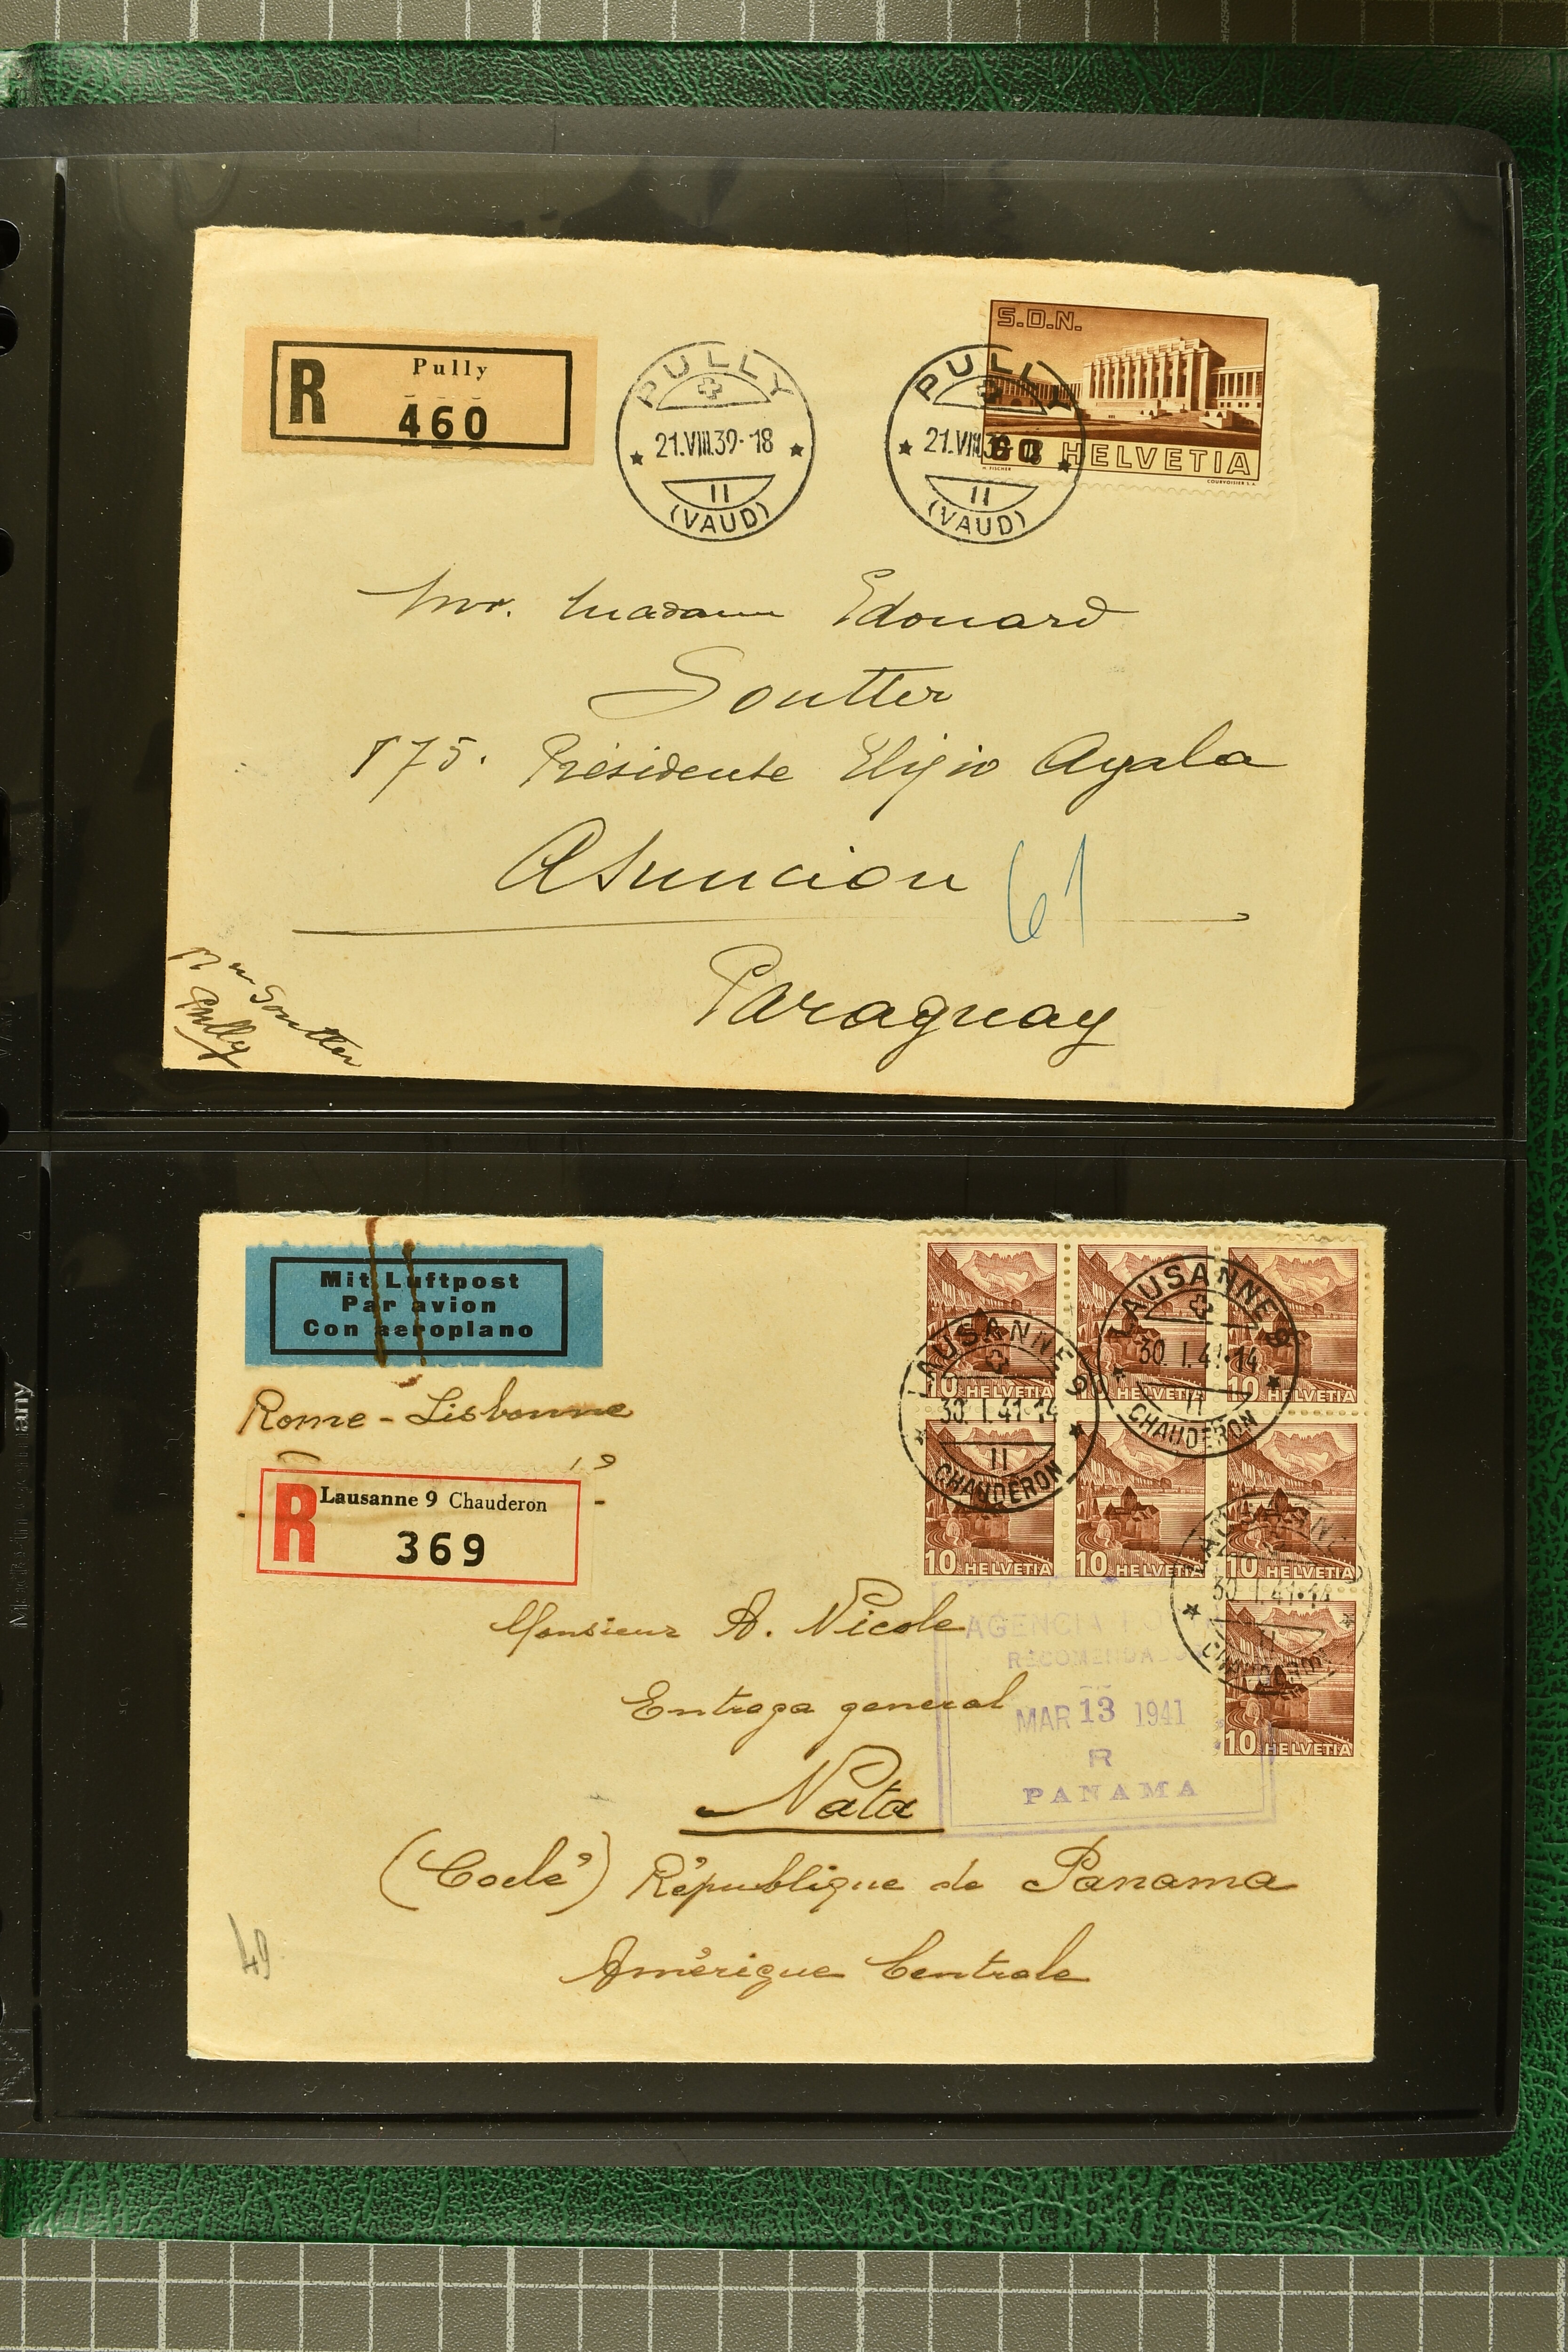 R
Pully
460
PULLY
21.VIII.39-18
11
(VAUD)
PULLY
21.VIII.39-18
11
(VAUD)
S.D.N.
60 HELVETIA
H. FISCHER
COURVOISIER S.A.
Mr. Madame Edouard
Soutter
175. Présidente Eligio Ayala
Asuncion
61
Paraguay
Soutter
Pully
Mit Luftpost
Par avion
Con aeroplano
Rome - Lisbonne
R
Lausanne 9 Chauderon
369
10 HELVETIA
10 HELVETIA
10 HELVETIA
10 HELVETIA
10 HELVETIA
10 HELVETIA
10 HELVETIA
LAUSANNE 9
30.I.41-14
11
CHAUDERON
LAUSANNE 9
30.I.41-14
11
CHAUDERON
30.I.41-14
11
Monsieur A. Nicole
Entrega general
Nata
(Coclé) République de Panama
Amérique Centrale
AGENCIA
RECOMENDADOS
MAR 13 1941
R
PANAMA
49